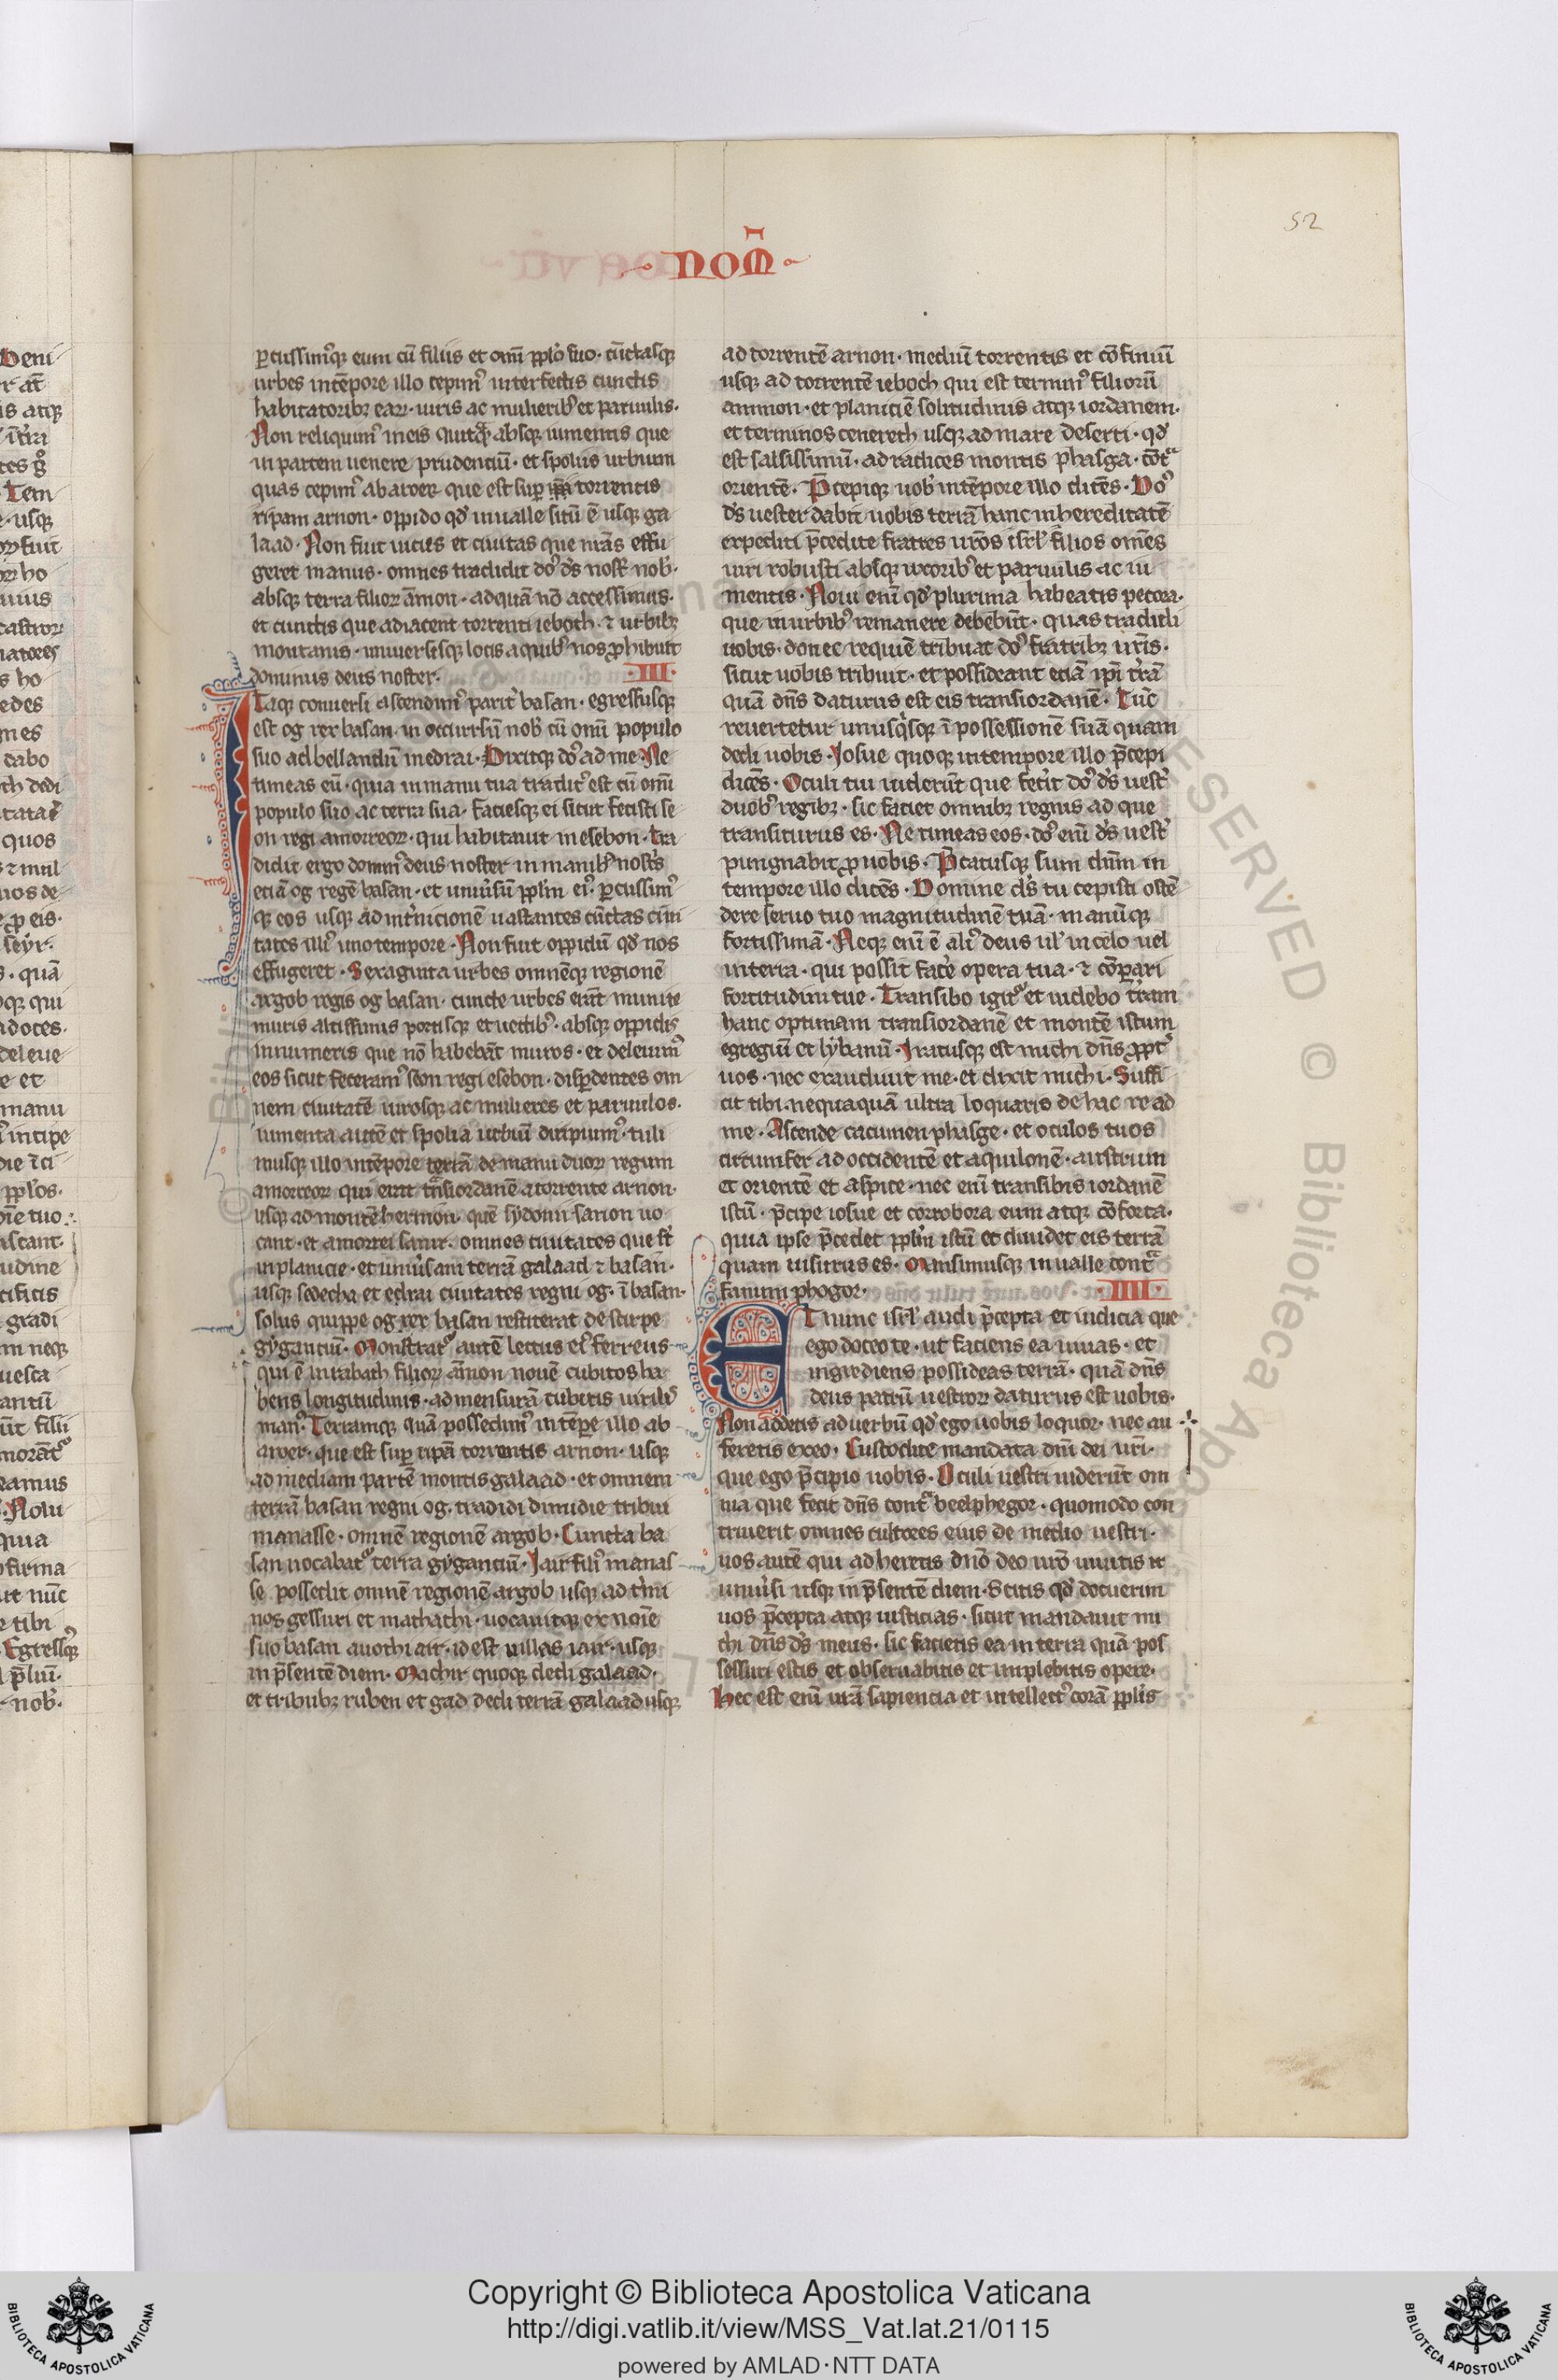 52
· NOM̄ ·
ꝑcussimꝰqꝫ eum cū filiis et om̄i ppl̓o suo · cūctasqꝫ
urbes in tēpore illo cepimꝰ interfectis cunctis
habitatoribꝫ eaꝝ · uiris ac mulieribꝰ et paruulis ·
Non reliquimꝰ in eis quicq̄ absqꝫ iumentis que
in partem uenere predenciū · et spoliis urbium
quas cepimꝰ ab aroer que est suꝑ torrentis
ripam arnon · oppido qd̓ in ualle sitū ē usqꝫ ga
laad · Non fuit uicus et ciuitas que nr̄as effu
geret manus · omnes tradidit do̓ ds̄ nost̓ nob̓ ·
absqꝫ terra filioꝝ āmon · ad quā nō accessimus ·
et cunctis que adiacent torrenti ieboch · ⁊ urbibꝫ
montanis · uniuersisqꝫ locis a quibꝰ nos ꝓhibuit
dominus deus noster · III ·
Itaqꝫ conuersi ascendimꝰ parit̓ basan · egressusqꝫ
est og rex basan · in occursū nob̓ cū om̄i populo
suo ad bellandū in edrai · Dixitqꝫ do̓ ad me · Ne
timeas eū · quia in manu tua traditꝰ est cū om̄i
populo suo ac terra sua · faciesqꝫ ei sicut fecisti se
on regi amorreoꝝ · qui habitauit in esebon · Tra
didit ergo dominꝰ deus noster in manibꝰ nost̓s
eciā og regē basan · et uniu̓sū ppl̓m eiꝰ · ꝑcussimꝰ
qꝫ eos usqꝫ ad int̓nicionē uastantes cūctas ciui
tates illiꝰ uno tempore · Non fuit oppidū qd̓ nos
effugeret · Sexaginta urbes omnēqꝫ regionē
argob regis og basan · cuncte urbes erāt munite
muris altissimis portisqꝫ et uectibꝰ · absqꝫ oppidis
innumeris que nō habebāt muros · et deleuimꝰ
eos sicut feceramꝰ seon regi esebon · disꝑdentes om
nem ciuitatē uirosqꝫ ac mulieres et paruulos ·
iumenta autē et spolia urbiū diripuimꝰ · tuli
musqꝫ illo in tēpore terrā de manu duoꝝ regum
amorreoꝝ qui erāt trāsiordanē a torrente arnon ·
usqꝫ ad montē hermon · quē sydonii sarion uo
cant · et amorrei sanir · omnes ciuitates que st̄
in planicie · et uniu̓sam terrā galaad ⁊ basan ·
usqꝫ selecha et edrai ciuitates regni og · ī basan ·
solus quippe og rex basan restiterat de stirpe
gygantiū · Monstrat̓ autē lectus eiꝰ ferreus
qui ē in rabath filioꝝ āmon nouē cubitos ha
bens longitudinis · ad mensurā cubitis uirilis
manꝰ · Terramqꝫ quā possedimꝰ in tēꝑe illo ab
aroer · que est suꝑ ripā torrentis arnon · usqꝫ
ad mediam partē montis galaad · et omnem
terrā basan regni og · tradidi dimidie tribui
manasse · omnē regionē argob · Cuncta ba
san uocabat̓ terra gygantiū · Iair filiꝰ manas
se possedit omnē regionē argob usqꝫ ad t̓mi
nos gessuri et mathathi · uocauitqꝫ ex noīe
suo basan auoth iair · id est uillas iair · usqꝫ
in p̄sentē diem · Machir quoqꝫ dedi galaad ·
et tribubꝫ ruben et gad dedi terrā galaad usqꝫ
ad torrentē arnon · mediū torrentis et cōfiniū
usqꝫ ad torrentē ieboch qui est terminꝰ filiorū
ammon · et planiciē solitudinis atqꝫ iordanem ·
et terminos cenereth usqꝫ ad mare deserti · qd̓
est salsissimū · ad radices montis phasga · cōt̄
orientē · P̄cepiqꝫ uob̓ in tēpore illo dicēs · Do̓
ds̄ uester dabit uobis terrā hanc in hereditatē
expediti p̄cedite fratres ur̄os isr̄l̓ filios om̄es
uiri robusti absqꝫ uxoribꝰ et paruulis ac iu
mentis · Noui enī qd̓ plurima habeatis pecora ·
que in urbibꝰ remanere debebūt · quas tradidi
uobis · donec requiē tribuat do̓ fratribꝫ ur̄is ·
sicut uobis tribuit · et possideant eciā ip̄i t̓rā
quā dn̄s daturus est eis transiordanē · Tūc
reuertetur unusq̓sqꝫ ī possessionē suā quam
dedi uobis · Iosue quoqꝫ in tempore illo p̄cepi
dicēs · Oculi tui uiderūt que fecit do̓ ds̄ uest̓
duobꝰ regibꝫ · sic faciet omnibꝫ regnis ad que
transiturus es · Ne timeas eos · do̓ enī ds̄ uest̓
pungnabit ꝓ uobis · P̄catusqꝫ sum dn̄m in
tempore illo dicēs · Domine ds̄ tu cepisti ostē
dere seruo tuo magnitudinē tuā · manūqꝫ
fortissimā · Neqꝫ enī ē aliꝰ deus ul̓ in celo uel
in terra · qui possit fac̓e opera tua · ⁊ cōꝑari
fortitudini tue · Transibo igit̓ et uidebo t̓ram
hanc optimam transiordanē et montē istum
egregiū et lybanū · Iratusqꝫ est michi dn̄s ꝓpt̓
uos · nec exaudiuit me · et dixit michi · Suffi
cit tibi · nequaquā ultra loquaris de hac re ad
me · Ascende cacumen phasge · et oculos tuos
circumfer ad occidentē et aquilonē · austrum
et orientē et aspice · nec enī transibis iordanē
istū · p̄cipe iosue et corrobora eum atqꝫ cōforta ·
quia ipse p̄cedet ppl̓m istū et diuidet eis terrā
quam uisurus es · Mansimusqꝫ in ualle cont̄
fanum phogor · IIII ·
Et nunc isr̄l̓ audi p̄cepta et iudicia que
ego doceo te · ut faciens ea uiuas · et
ingrediens possideas terrā · quā dn̄s
deus patrū uestroꝝ daturus est uobis ·
Non addetis ad uerbū qd̓ ego uobis loquor · nec au
feretis ex eo · Custodite mandata dn̄i dei ur̄i ·
que ego p̄cipio uobis · Oculi uestri uiderūt om
nia que fecit dn̄s cont̄ beelphegor · quomodo con
triuerit omnes cultores eius de medio uestri ·
uos autē qui adheretis dn̄o deo ur̄o uiuitis
uniu̓si usqꝫ in p̄sentē diem · Scitis qd̓ docuerim
uos p̄cepta atqꝫ iusticias · sicut mandauit mi
chi dn̄s ds̄ meus · sic facietis ea in terra quā pos
sessuri estis et obseruabitis et implebitis opere ·
Hec est enī ur̄a sapiencia et intellectꝰ corā ppl̓is
Copyright © Biblioteca Apostolica Vaticana
http://digi.vatlib.it/view/MSS_Vat.lat.21/0115
powered by AMLAD·NTT DATA